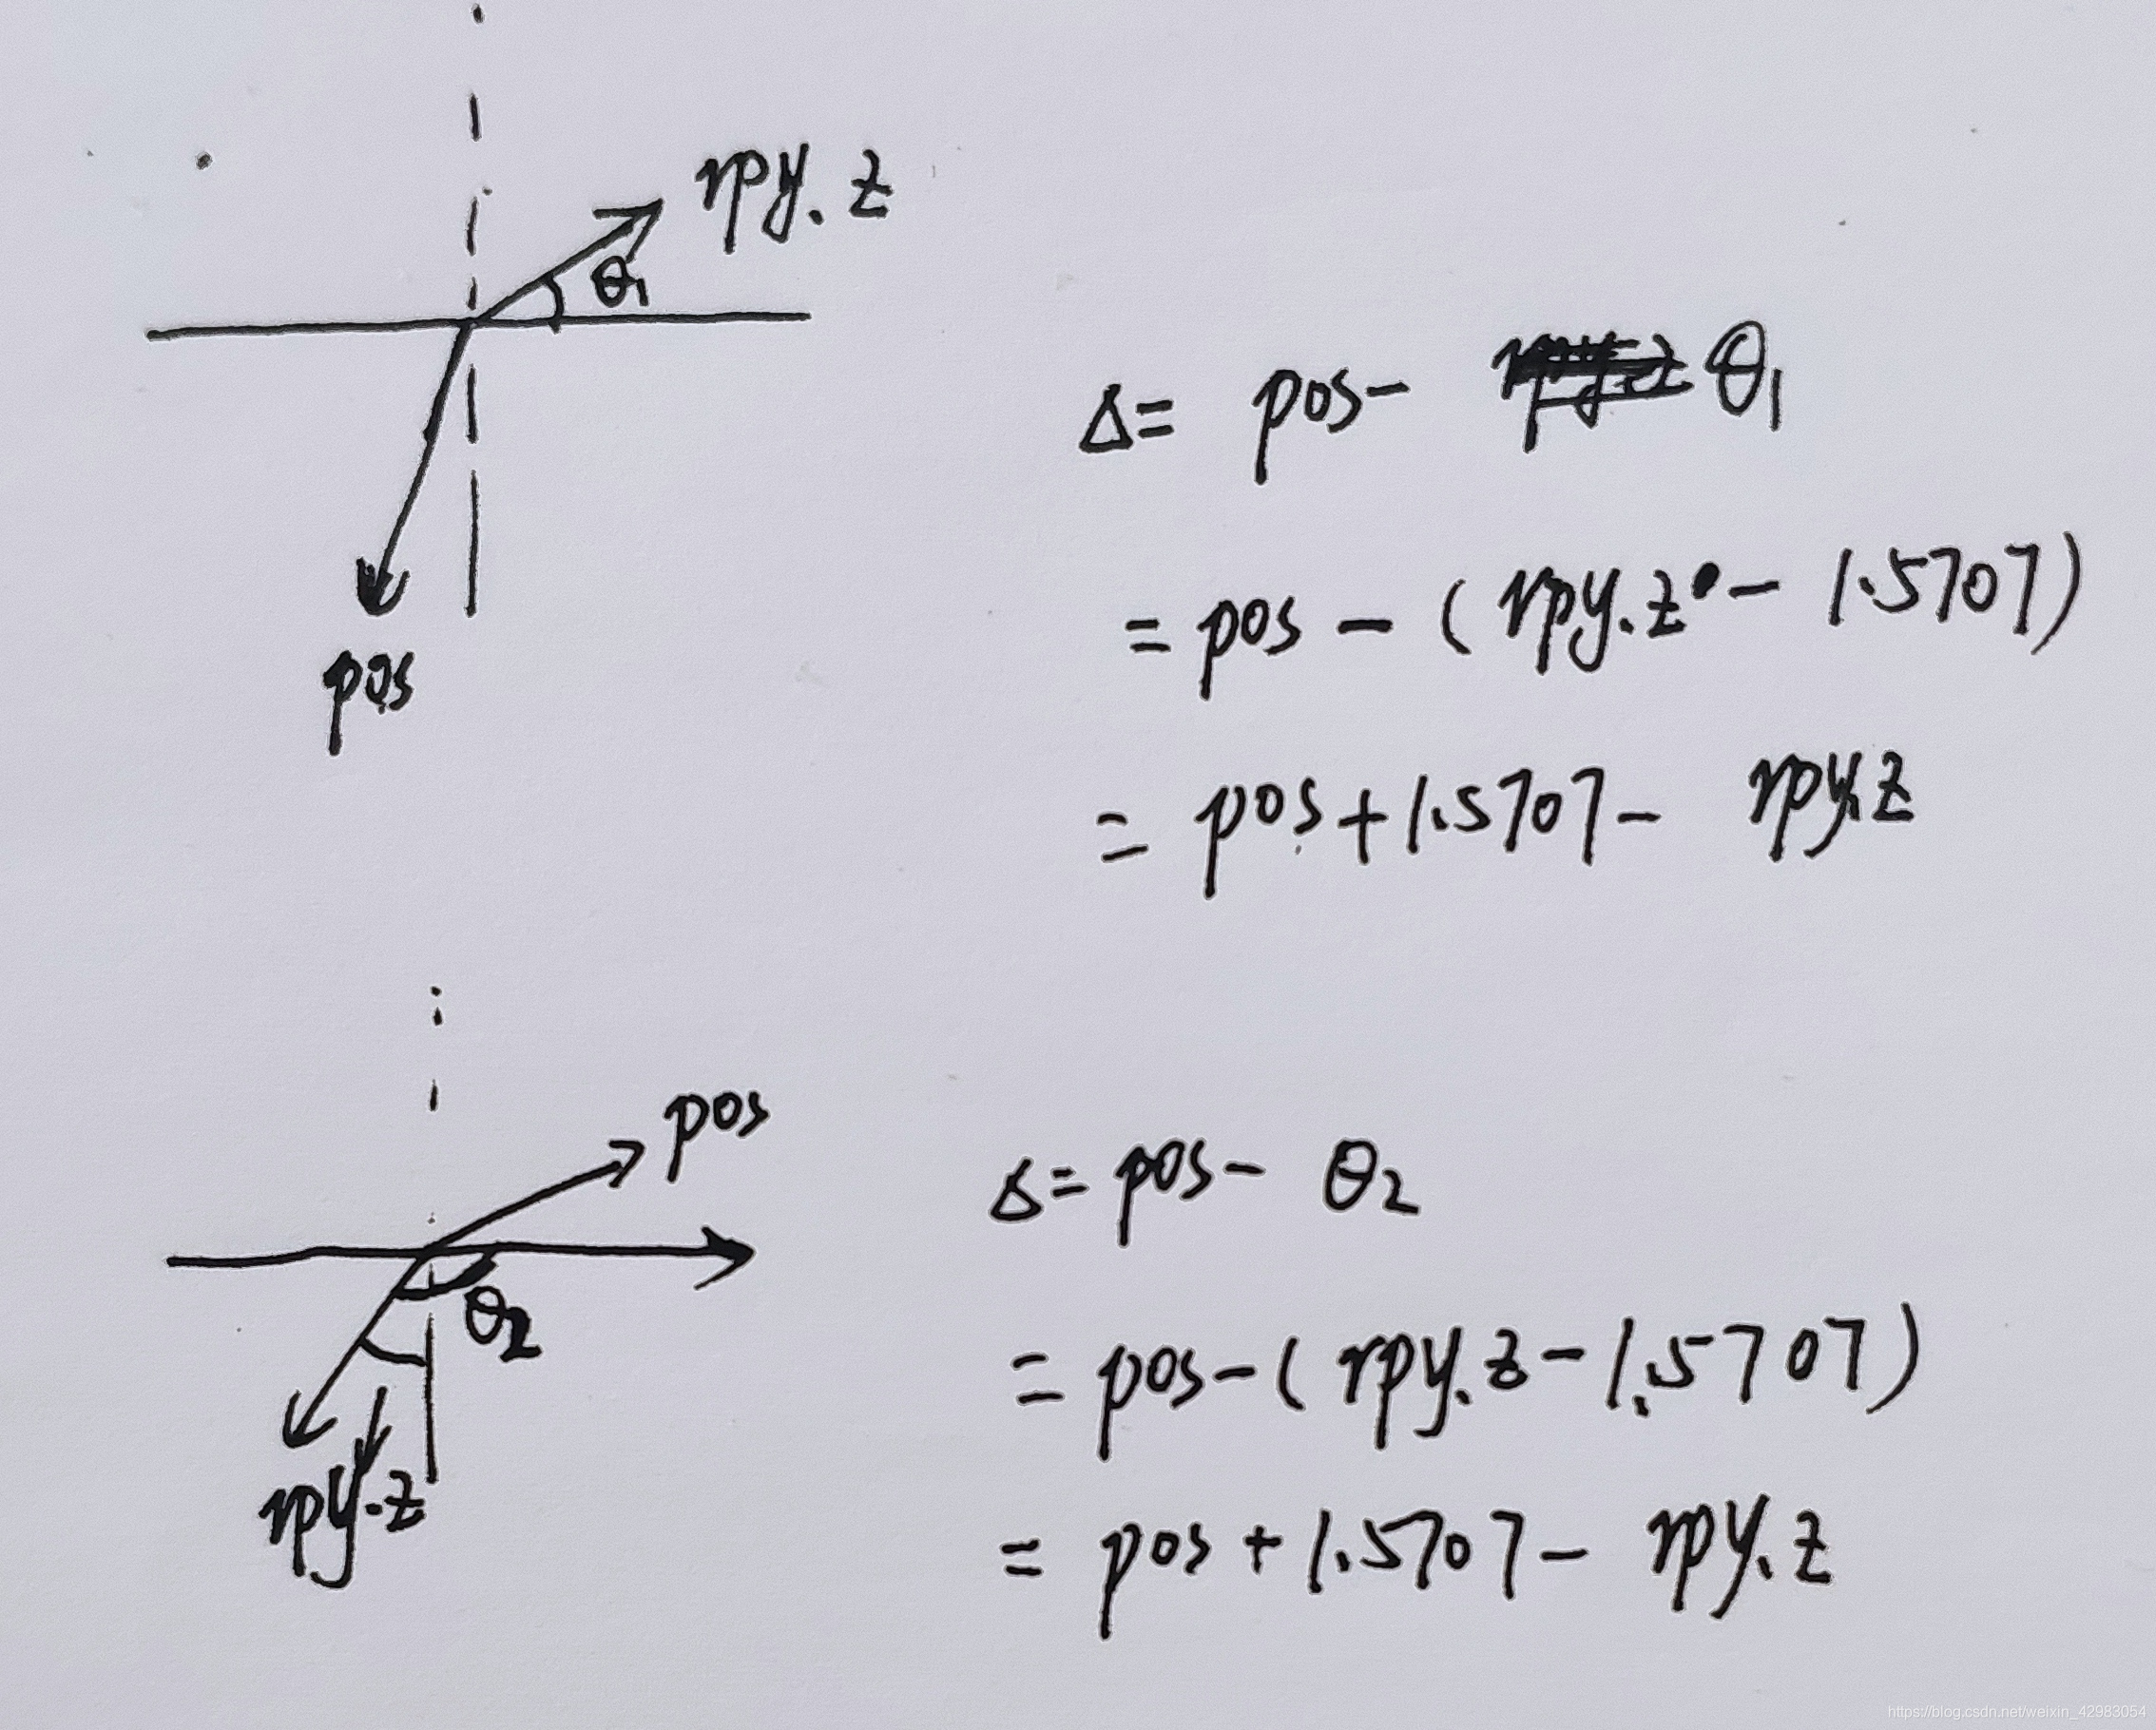 rpy.z
θ1
pos
Δ= pos- θ1
= pos - (rpy.z - 1.5707)
= pos + 1.5707 - rpy.z
pos
θ2
rpy.z
Δ= pos- θ2
= pos-(rpy.z-1.5707)
= pos + 1.5707- rpy.z
https://blog.csdn.net/weixin_42983054